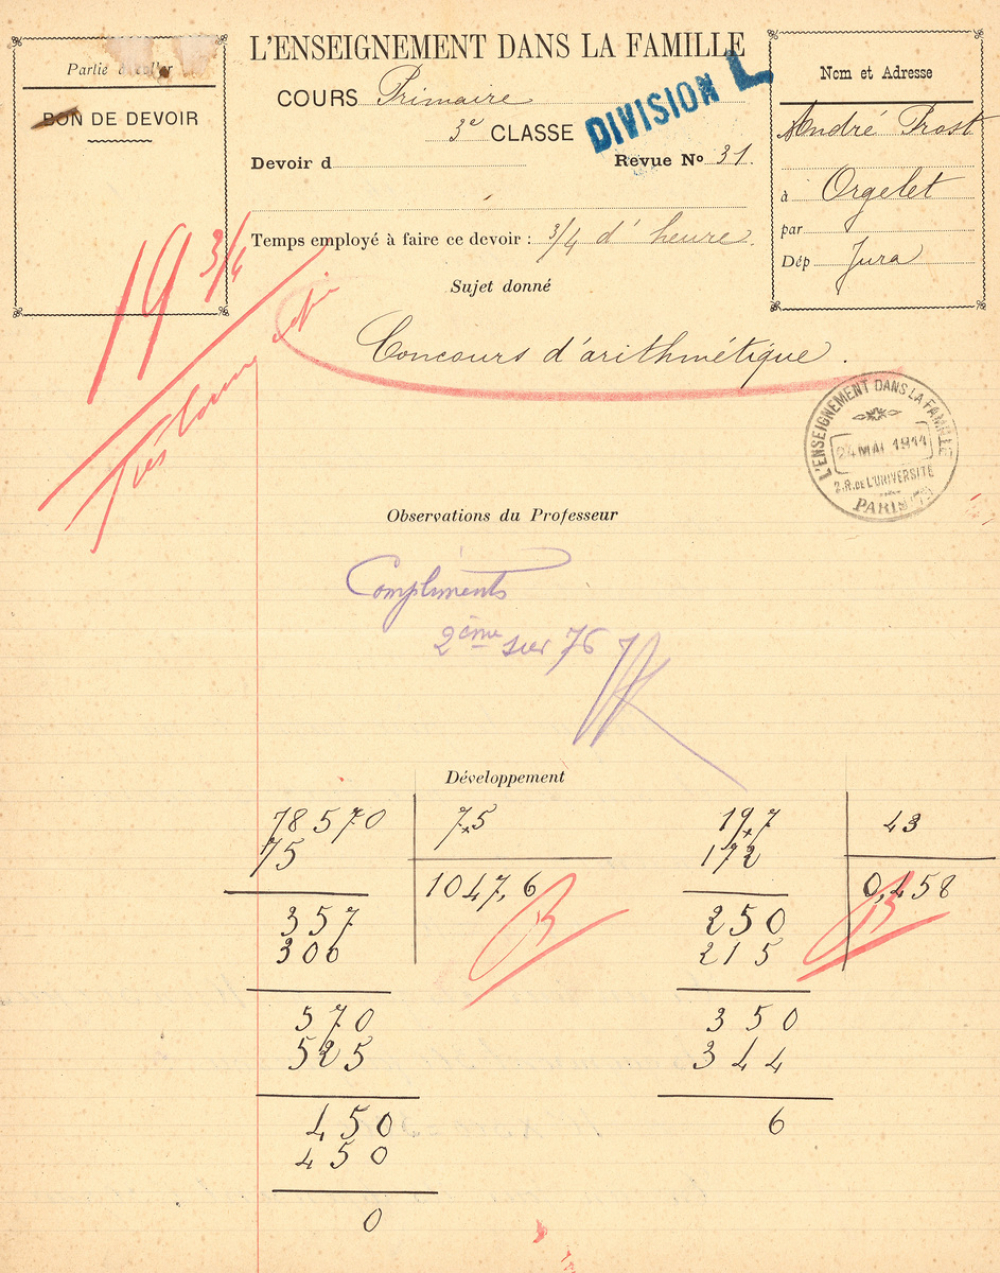 L'ENSEIGNEMENT DANS LA FAMILLE
Partie à coller
BON DE DEVOIR
COURS Primaire
3e CLASSE
DIVISION L
Devoir d
Revue No 31.
Temps employé à faire ce devoir : 3/4 d'heure.
Nom et Adresse
André Prost
à Orgelet
par
Dép Jura
19 3/4
Très bien
Sujet donné
Concours d'arithmétique.
L'ENSEIGNEMENT DANS LA FAMILLE
24 MAI 1911
2.R.DE L'UNIVERSITÉ
PARIS
Observations du Professeur
Compliments
2ème sur 76
Développement
78570 7,5
75
1047,6
357
300
570
525
450
450
0
19,7 43
172
0,458
250
215
350
344
6
B
B